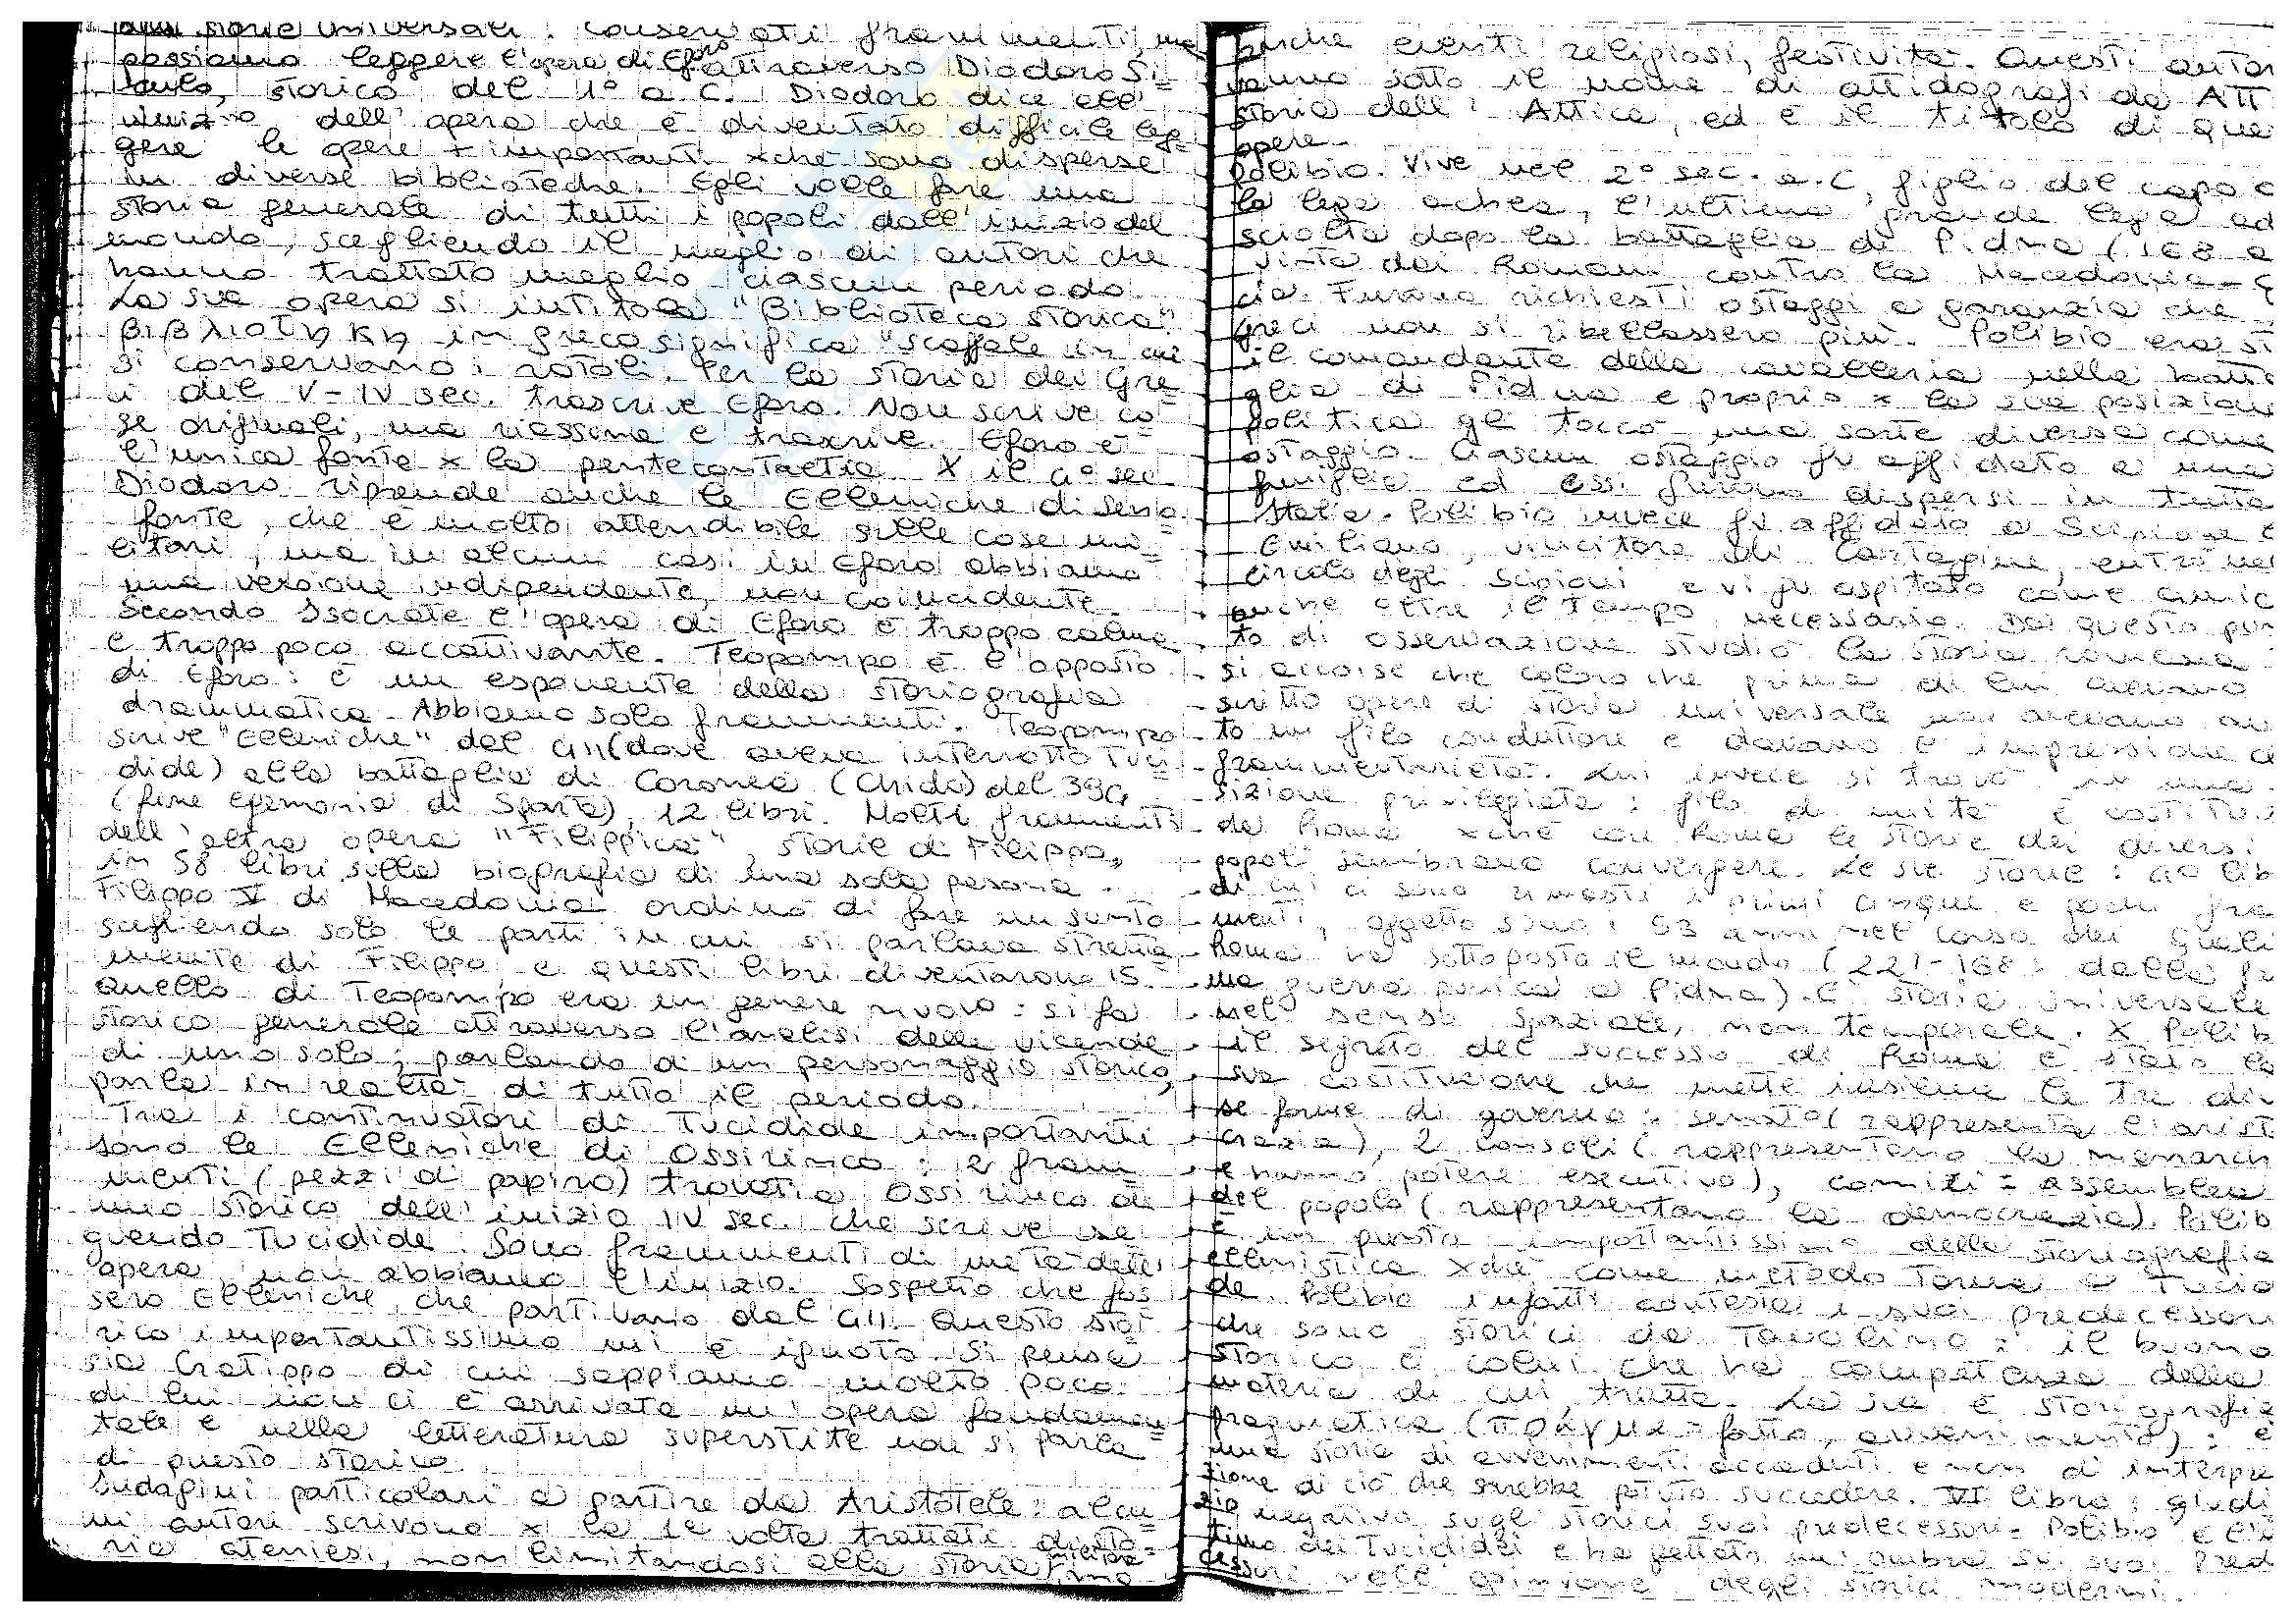 storie universali: conservati frammenti, ma
possiamo leggere l'opera di Eforo attraverso Diodoro Si=
culo, storico del 1° a.C. Diodoro dice all'
inizio dell'opera che è diventato difficile leg=
gere le opere + importanti xchè sono disperse
in diverse biblioteche. Egli volle fare una
storia generale di tutti i popoli dall'inizio del
mondo, scegliendo il meglio di autori che
hanno trattato meglio ciascun periodo.
La sua opera si intitola "Biblioteca storica".
βιβλιοτηκη in greco significa "scaffale in cui
si conservano i rotoli. Per la storia dei Gre
ci del V-IV sec. trascrive Eforo. Non scrive co=
se originali, ma riassume e trascrive. Eforo è
l'unica fonte x la pentecontactia. X il 4° sec.
Diodoro riprende anche le Elleniche di Seno
fonte, che è molto attendibile sulle cose mi=
litari, ma in alcuni casi in Eforo abbiamo
una versione indipendente, non coincidente.
Secondo Isocrate l'opera di Eforo è troppo calma
e troppo poco accattivante. Teopompo è l'opposto
di Eforo: è un esponente della storiografia
drammatica. Abbiamo solo frammenti. Teopompo
scrive "Elleniche" dal 411 (dove aveva interrotto Tuci=
dide) alla battaglia di Coronea (Chido) del 394
(fine egemonia di Sparta), 12 libri. Molti frammenti
dell'altra opera "Filippica", storie di Filippo,
in 58 libri sulla biografia di una sola persona.
Filippo V di Macedonia ordinò di fare un sunto
scegliendo solo le parti in cui si parlava stretta
mente di Filippo e questi libri diventarono 15.
Quello di Teopompo era un genere nuovo: si fa
storico generale attraverso l'analisi delle vicende
di uno solo; parlando di un personaggio storico,
parla in realtà di tutto il periodo.
Tra i continuatori di Tucidide importanti
sono le Elleniche di Ossirinco: 2 fram=
menti (pezzi di papiro) trovati a Ossirinco di
uno storico dell'inizio IV sec. che scrive se
guendo Tucidide. Sono frammenti di metà dell'
opera, non abbiamo l'inizio. Sospetto che fos
sero Elleniche che partivano dal 411. Questo sto=
rico importantissimo mi è ignoto. Si pensa
sia Cratippo di cui sappiamo molto poco:
di lui non ci è arrivata un'opera fondamen=
tale e nella letteratura superstite non si parla
di questo storico.
Indagini particolari a partire da Aristotele: alcu=
ni autori scrivono x la 1ª volta trattati di sto
ria ateniesi, non limitandosi alla storia, ma
anche eventi religiosi, festività. Questi autor
vanno sotto il nome di attidografi da ATT
storia dell'Attica, ed è il titolo di que
opere.
Polibio. Vive nel 2° sec. a.C, figlio del capo d
la lega achea, l'ultima grande lega ad
sciolta dopo la battaglia di Pidna (168 a
vinta dai Romani contro la Macedonia-G
cia. Furono richiesti ostaggi a garanzia che
Greci non si ribellassero più. Polibio era st
il comandante della cavalleria nella batta
glia di Pidna e proprio x la sua posizion
politica gli toccò una sorte diversa come
ostaggio. Ciascun ostaggio fu affidato a una
famiglia ed essi furono dispersi in tutta
Italia. Polibio invece fu affidato a Scipione E
Emiliano, vincitore di Cartagine, entrò nel
circolo degli Scipioni e vi fu ospitato come amic
anche oltre il tempo necessario. Da questo pun
to di osservazione studiò la storia romana
si accorse che coloro che prima di lui avevano
scritto opere di storia universale non avevano av
to un filo conduttore e davano l'impressione d
frammentarietà. Lui invece si trovò in una
sizione privilegiata: filo di unità è costitui
da Roma xchè con Roma le storie dei diversi
popoli sembrano convergere. Le sue storie: 40 lib
di cui ci sono rimasti i primi cinque e pochi fra
menti, oggetto sono i 53 anni nel corso dei quali
Roma ha sottoposto il mondo (221-168: dalla fi
ma guerra punica a Pidna). È storia universale
nel senso spaziale, non temporale. X Polib
il segreto del successo di Roma è stato la
sua costituzione che mette insieme le tre div
se forme di governo: senato (rappresenta l'arist
crazia), 2 consoli (rappresentano la monarch
e hanno potere esecutivo), comizi = assemblea
del popolo (rappresentano la democrazia). Polib
è un punto importantissimo della storiografia
ellenistica xchè come metodo torna a Tucid
de. Polibio infatti contesta i suoi predecessori
che sono storici da tavolino: il buono
storico è colui che ha competenza della
materia di cui tratta. La sua è storiografia
pragmatica (πραγμα = fatto, avvenimento): è
una storia di avvenimenti accaduti e non di interpre
zione di ciò che sarebbe potuto succedere. VI libro: giudi
zio negativo sugli storici suoi predecessori. Polibio è l'ul
timo dei Tucididei e ha gettato un'ombra sui suoi pred
cessori nell'opinione degli storici moderni.